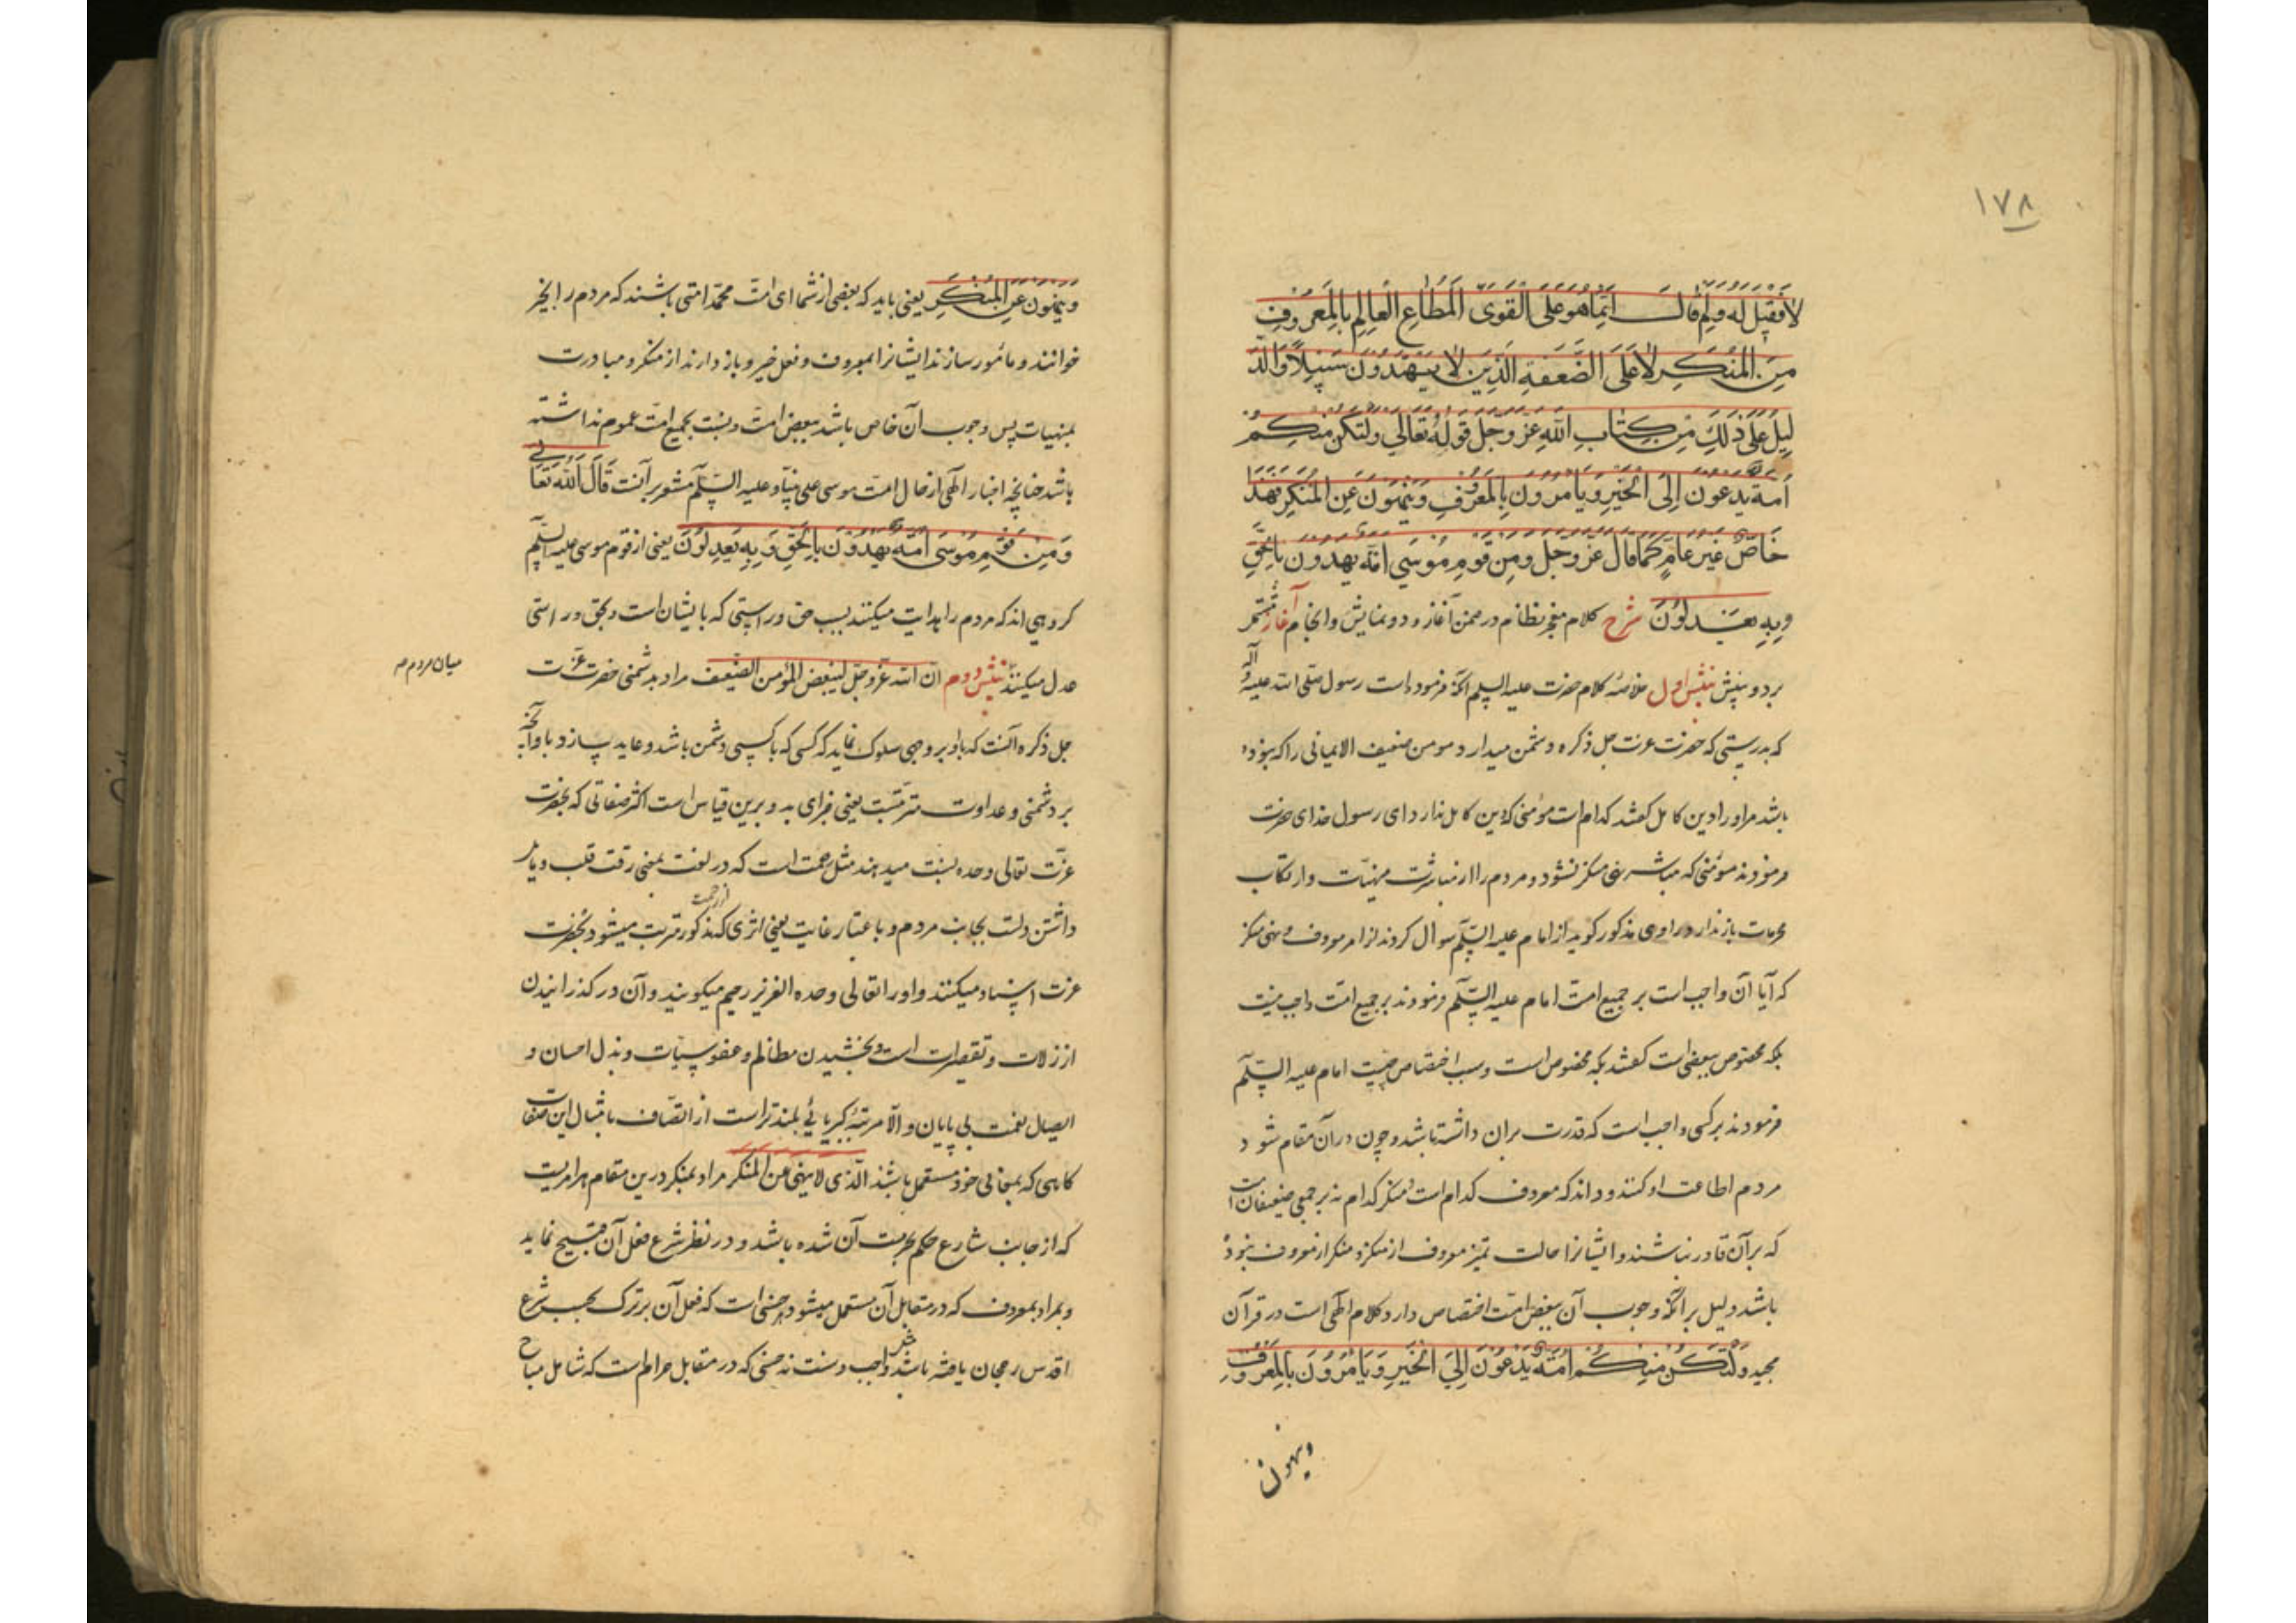 ۱۷۸
لا فقيل له ولم قال انما هو على القوى المطاع العالم بالمعروف
من المنكر لا على الضعفة الذين لا يهتدون سبيلا والد
ليل على ذلك من كتاب الله عز وجل قوله تعالى ولتكن منكم
امة يدعون الى الخير ويأمرون بالمعروف وينهون عن المنكر فهذا
خاص غير عام كما قال عز وجل ومن قوم موسى امة يهدون بالحق
وبه يعدلون شرح کلام معجز نظام در ضمن آغاز و دو نمایش و انجام آغاز مشتمل
بر دو بینش بینش اول خلاصه کلام حضرت علیه السلم آنکه فرموده است رسول صلی الله علیه وآله
که بدرستی که حضرت عزت جل ذکره دشمن میدارد مومن ضعیف الایمانی را که نبوده
باشد مر او را دین کامل گفتند کدام است مؤمنی که دین کامل ندارد ای رسول خدای حضرت
فرمودند مؤمنی که مباشر نهی منکر نشود و مردم را از مباشرت منهیات و ارتکاب
محرمات باز ندارد راوی مذکور گوید از امام علیه السلم سوال کردند از امر معروف و نهی منکر
که آیا آن واجب است بر جمیع امت امام علیه السلم فرمودند بر جمیع امت واجب نیست
بلکه مخصوص ببعضی است گفتند بچه مخصوص است و سبب اختصاص چیست امام علیه السلم
فرمودند بر کسی واجب است که قدرت بران داشته باشد و چون در آن مقام شود
مردم اطاعت او کنند و داند که معروف کدام است و منکر کدام نه بر جمعی ضعیفان است
که بر آن قادر نباشند و ایشانرا حالت تمیز معروف از منکر و منکر از معروف نبوده
باشد و لیل بر آنکه وجوب آن ببعض امت اختصاص دارد کلام الهی است در قرآن
مجید ولتكن منكم امة يدعون الى الخير ويأمرون بالمعروف
وینهون
وينهون عن المنكر یعنی باید که بعضی از شما ای امت محمد امتی باشند که مردم را بخیر
خوانند و مأمور سازند ایشانرا بمعروف و فعل خیر و باز دارند از منکر و مبادرت
بمنهیات پس وجوب آن خاص باشد ببعض امت و نسبت بجمیع امت عموم نداشته
باشد چنانچه اخبار الهی از حال امت موسی علی نبینا و علیه السلم مشعر بر آنست قال الله تعالی
ومن قوم موسى امة يهدون بالحق وبه يعدلون یعنی از قوم موسی علیه السلم
گروهی اند که مردم را هدایت میکنند بسبب حق و راستی که با ایشان است و بحق و راستی
عدل میکنند بینش دوم ان الله عز وجل ليبغض المؤمن الضعيف مراد بدشمنی حضرت عزت
میان مردم صح
جل ذکره آنست که با او بر وجهی سلوک نماید که کسی که با کسی دشمن باشد و عاید سازد باو آنچه
بر دشمنی و عداوت مترتبست یعنی جزای بد و برین قیاس است اکثر صفاتی که بحضرت
عزت تعالی وحده نسبت میدهند مثل رحمت است که در لغت بمعنی رقت قلب و مایل
داشتن دلست بجانب مردم و باعتبار غایت یعنی اثری که از رحمت مذکور مترتب میشود بحضرت
عزت اسناد میکنند و او را تعالی وحده العزیز رحیم میگویند و آن در گذرانیدن
از زلات و تقصیرات است و بخشیدن مظالم و عفو سیئات و بذل احسان و
ایصال نعمت بی پایان و الا مرتبه کبریائی بلند تر است از اتصاف بامثال این صفات
گاهی که بمعانی خود مستعمل باشند الذى لا ينهى عن المنكر مراد بمنکر درین مقام هر امریست
که از جانب شارع حکم بحرمت آن شده باشد و در نظر شرع فعل آن قبیح نماید
و مراد بمعروف که در مقابل آن مستعمل میشود هر حسنی است که فعل آن بر ترک بحسب شرع
اقدس رجحان یافته باشد خواه واجب و سنت نه حسنی که در مقابل حرام است که شامل مباح